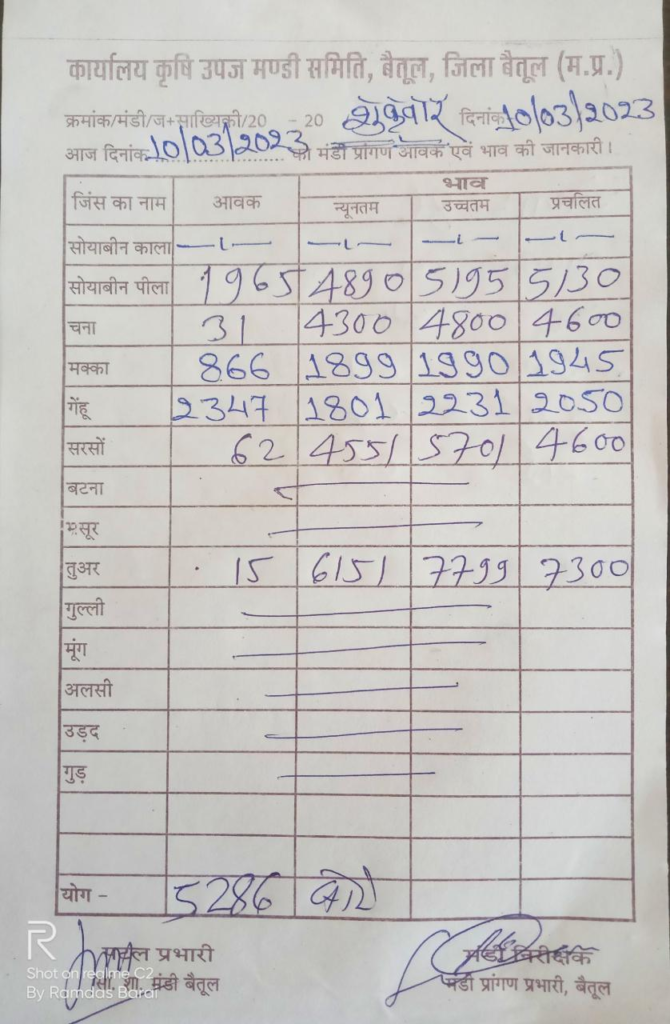 कार्यालय कृषि उपज मण्डी समिति, बैतूल, जिला बैतूल (म.प्र.)
क्रमांक/मंडी/ज+साख्यिकी/20 - 20 शुक्रवार दिनांक 10/03/2023
आज दिनांक 10/03/2023 को मंडी प्रांगण आवक एवं भाव की जानकारी।
भाव
जिंस का नाम आवक न्यूनतम उच्चतम प्रचलित
सोयाबीन काला —ι— —ι— —ι— —ι—
सोयाबीन पीला 1965 4890 5195 5130
चना 31 4300 4800 4600
मक्का 866 1899 1990 1945
गेंहू 2347 1801 2231 2050
सरसों 62 4551 5701 4600
बटना
मसूर
तुअर 15 6151 7799 7300
गुल्ली
मूंग
अलसी
उड़द
गुड़
योग - 5286 बोरे
प्रभारी मंडी निरीक्षक
सां. शा. मंडी बैतूल मंडी प्रांगण प्रभारी, बैतूल
R
Shot on realme C2
By Ramdas Barai